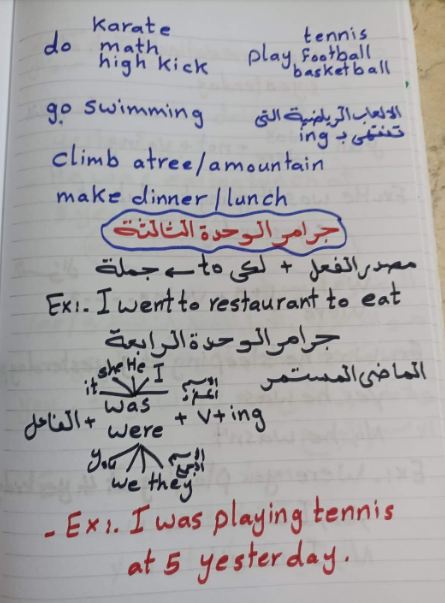 karate
do math
high kick
tennis
play football
basketball
go swimming
الالعاب الرياضية التى
تنتهى بـ ing
climb atree/amountain
make dinner/lunch
جرامر الوحدة الثالثة
جملة ← to لكى + مصدر الفعل
Ex:. I went to restaurant to eat
جرامر الوحدة الرابعة
الماضى المستمر
it she He I الاسم المفرد
الفاعل + was were + v+ing
you we they الاسم الجمع
- Ex:. I was playing tennis
at 5 yesterday.